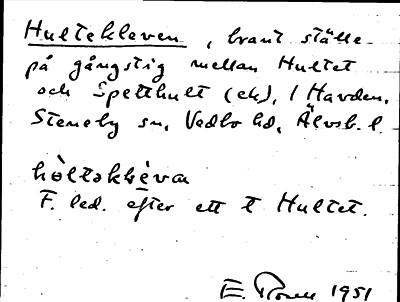 Hultekleven, brant ställe
på gångstig mellan Hultet
och Spetthult (ek), / Havden.
Steneby sn, Vedbo hd, Älvsb. l.
hòltəklèva
F. led. efter ett t Hultet.
E. 1951